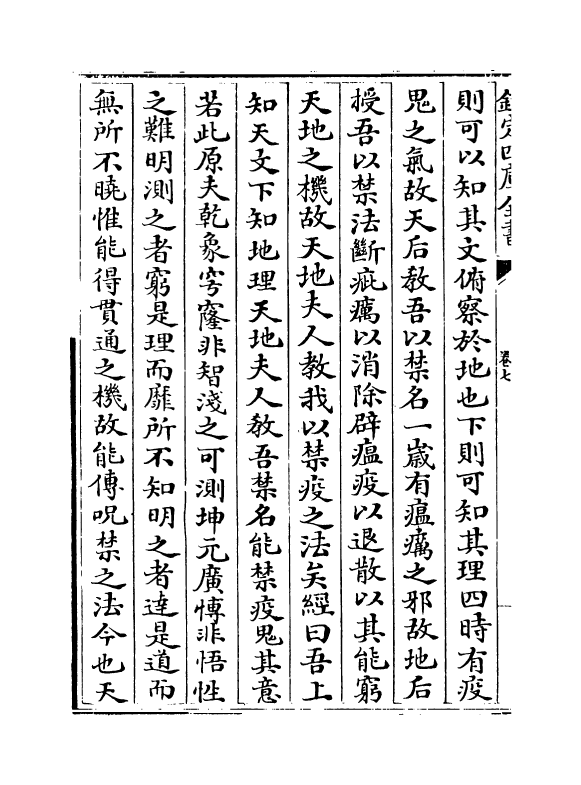 欽定四庫全書
卷七
則可以知其文俯察於地也下則可知其理四時有疫
鬼之氣故天后教吾以禁名一歲有瘟癘之邪故地后
授吾以禁法斷疵癘以消除辟瘟疫以退散以其能窮
天地之機故天地夫人教我以禁疫之法矣經曰吾上
知天文下知地理天地夫人教吾禁名能禁疫鬼其意
若此原夫乾象穹窿非智淺之可測坤元廣愽非悟性
之難明測之者窮是理而靡所不知明之者逹是道而
無所不曉惟能得貫通之機故能傳呪禁之法今也天